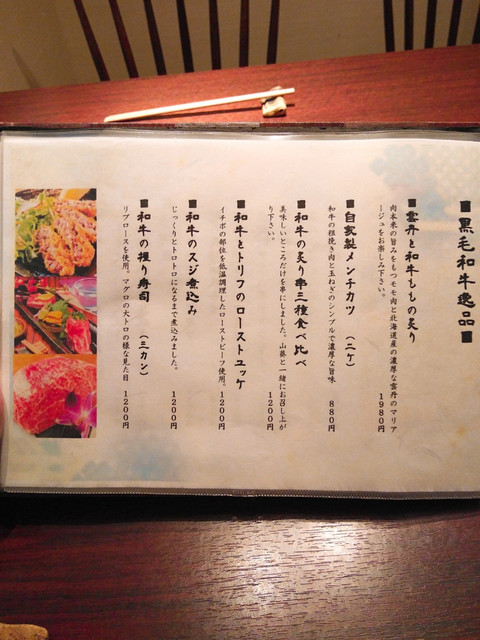 ■黒毛和牛逸品■
■雲丹と和牛ももの炙り
肉本来の旨みをもつモモ肉と北海道産の濃厚な雲丹のマリア
ージュをお楽しみ下さい。
1980円
■自家製メンチカツ （二ケ）
和牛の粗挽き肉と玉ねぎのシンプルで濃厚な旨味
880円
■和牛の炙り串三種食べ比べ
美味しいところだけを串にしました。山葵と一緒にお召し上が
り下さい。
1200円
■和牛とトリフのローストユッケ
イチボの部位を低温調理したローストビーフ使用。
1200円
■和牛のスジ煮込み
じっくりとトロトロになるまで煮込みました。
1200円
■和牛の握り寿司 （三カン）
リブロースを使用。マグロの大トロの様な見た目
1200円